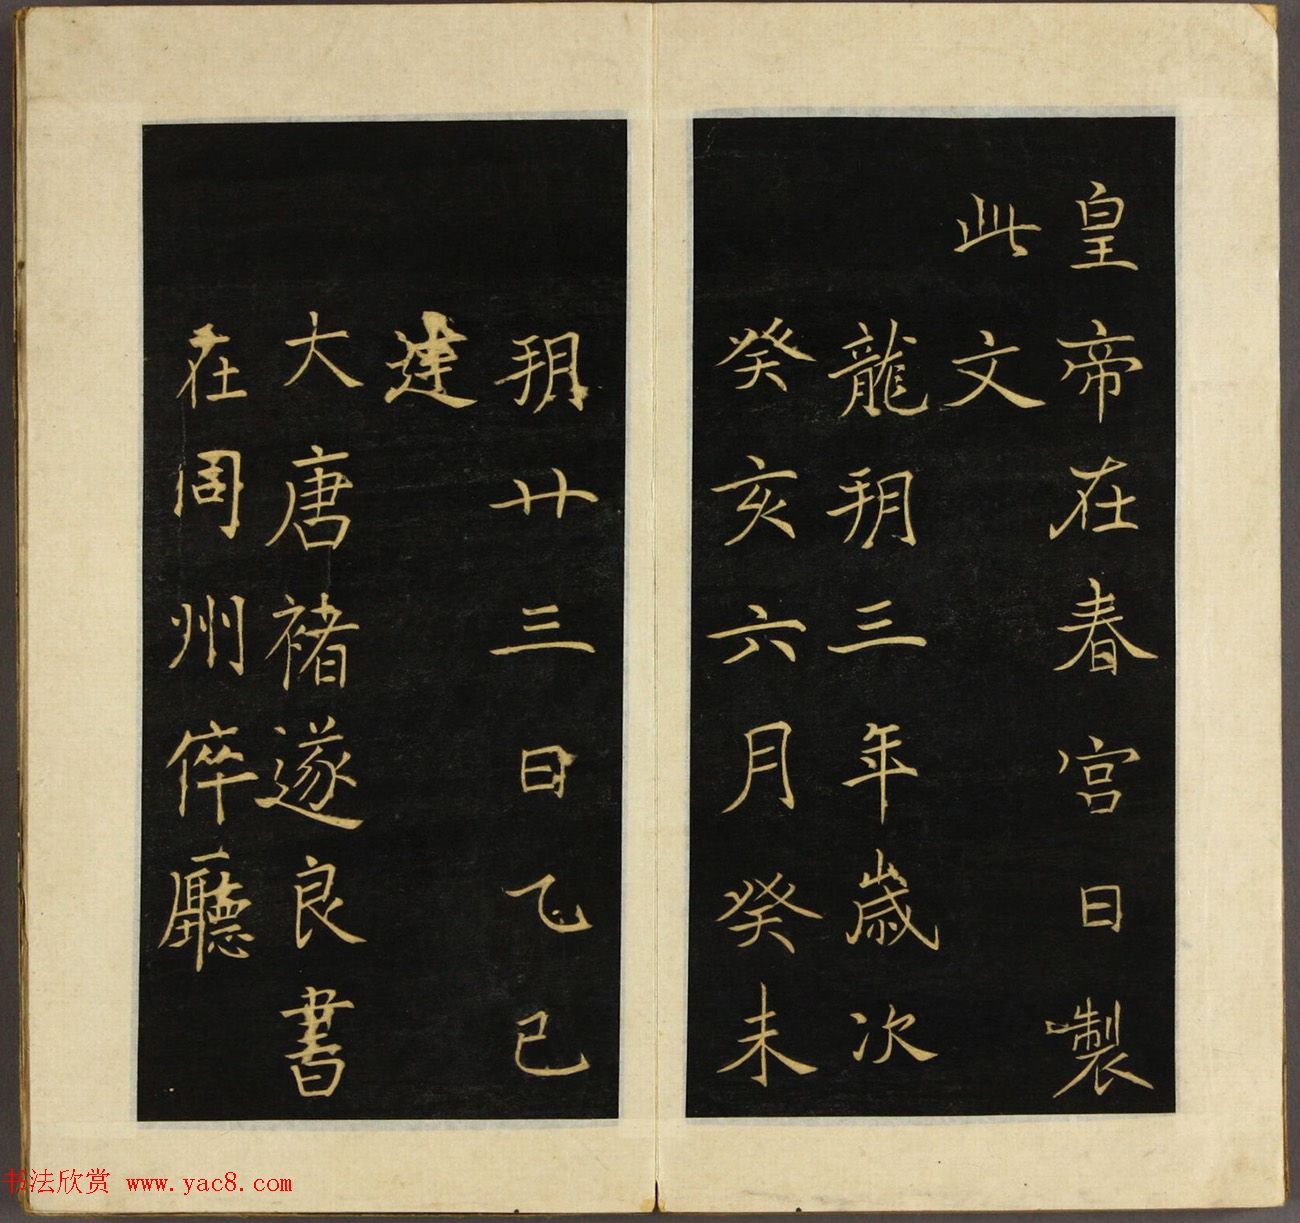 皇帝在春宮日製
此文
龍朔三年歲次
癸亥六月癸未
朔廿三日乙巳
建
大唐褚遂良書
在同州倅廳
书法欣赏 www.yac8.com